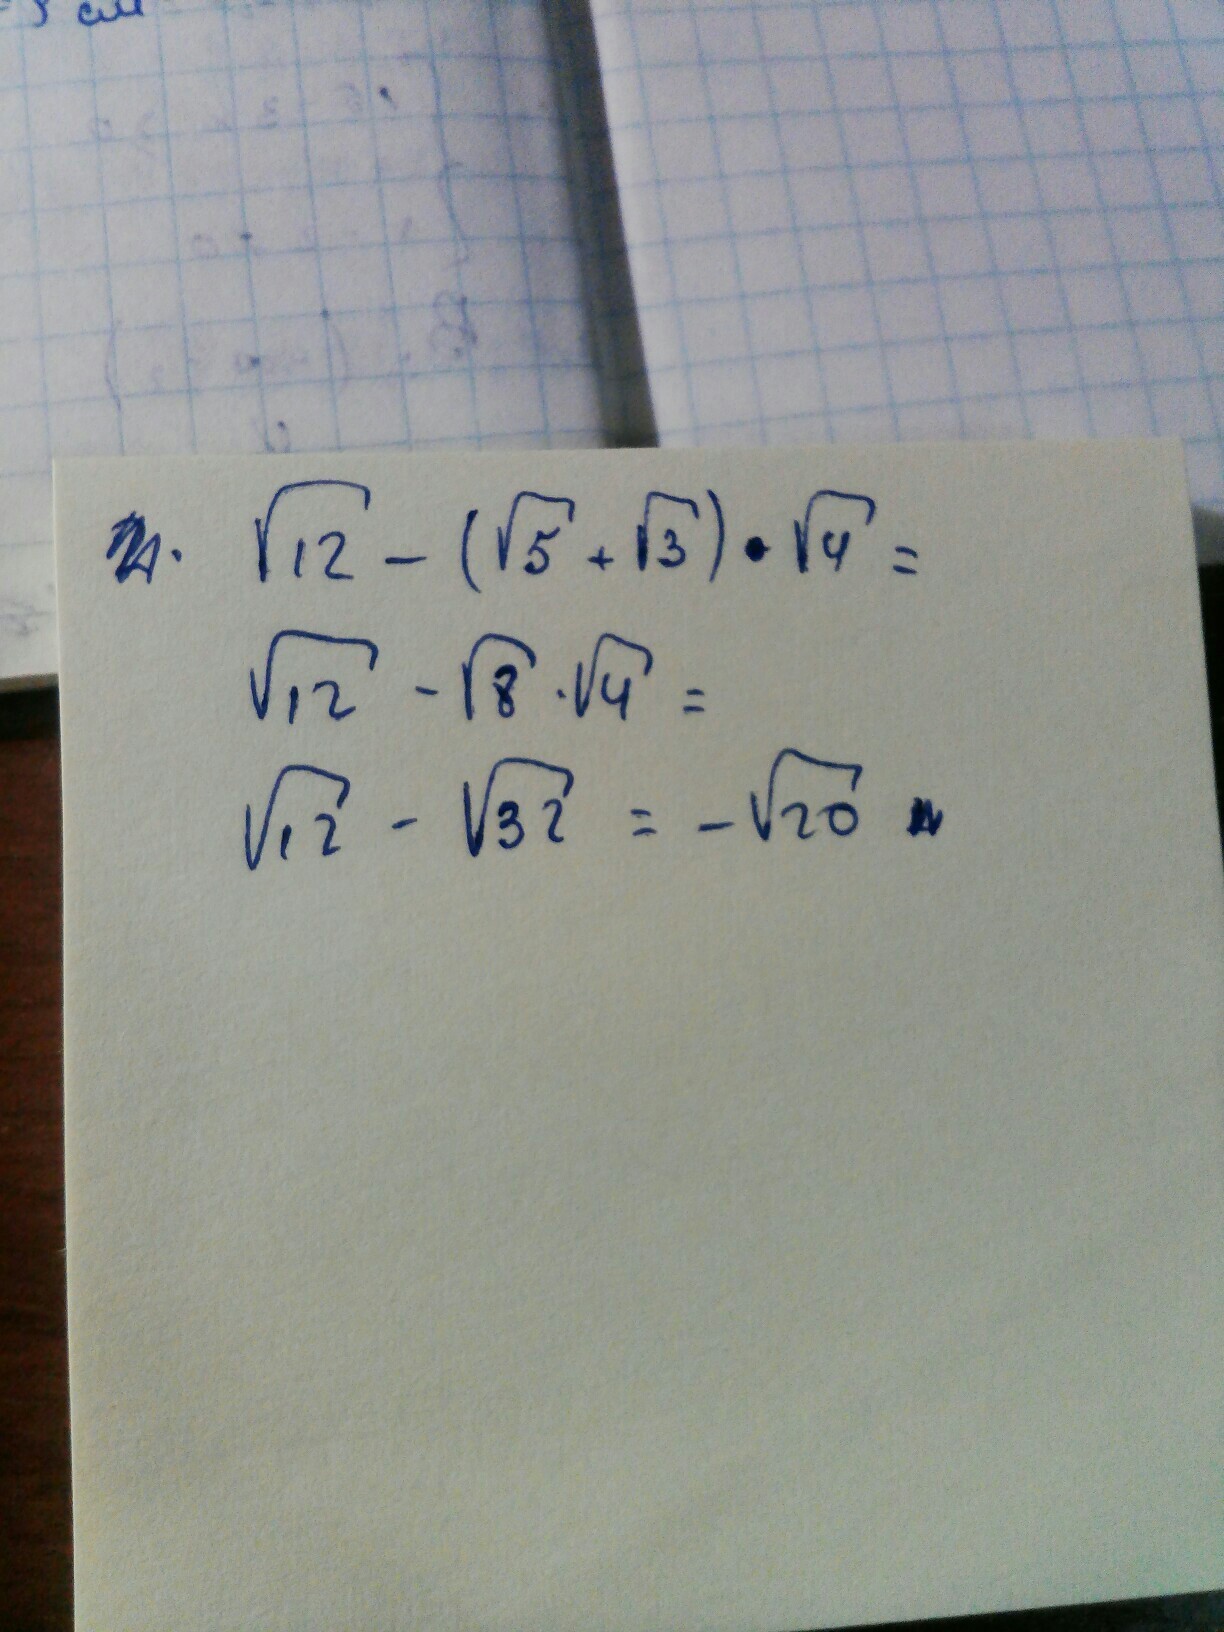 см
2. √12 - (√5 + √3) • √4 =
√12 - √8 · √4 =
√12 - √32 = -√20